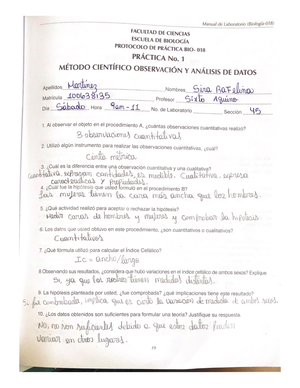 Manual de Laboratorio (Biología 018)
FACULTAD DE CIENCIAS
ESCUELA DE BIOLOGÍA
PROTOCOLO DE PRÁCTICA BIO- 018
PRÁCTICA No. 1
MÉTODO CIENTÍFICO OBSERVACIÓN Y ANÁLISIS DE DATOS
Apellidos Martínez Nombres Sira Rafelina
Matrícula 100638135 Profesor Sixto Aquino
Día Sábado Hora 9am-11 No. de Laboratorio Sección 45
1. Al observar el objeto en el procedimiento A, ¿cuántas observaciones cuantitativas realizó?
3 observaciones cuantitativas
2. Utilizó algún instrumento para realizar las observaciones cuantitativas, ¿cuál?
Cinta métrica
3. ¿Cuál es la diferencia entre una observación cuantitativa y una cualitativa?
Cuantitativa, expresan cantidades, es medible. Cualitativa, expresa
características y propiedades.
4. ¿Cuál fue la hipótesis que usted formuló en el procedimiento B?
Las mujeres tienen la cara más ancha que los hombres.
5. ¿Qué actividad realizó para aceptar o rechazar la hipótesis?
Medir caras de hombres y mujeres y comprobar la hipótesis
6. Los datos que usted obtuvo en este procedimiento, ¿son cuantitativos o cualitativos?
Cuantitativos
7. ¿Qué fórmula utilizó para calcular el Índice Cefálico?
Ic = ancho/largo
8 Observando sus resultados, ¿considera que hubo variaciones en el índice cefálico de ambos sexos? Explique
Si, ya que los rostros tienen medidas distintas.
9. La hipótesis planteada por usted, ¿fue comprobada? ¿qué implicaciones tiene este resultado?
Si fue comprobada, implica que es cierta la variación de medidas de ambos sexos.
10. ¿Los datos obtenidos son suficientes para formular una teoría? Justifique su respuesta.
No, no son suficientes debido a que estos datos pueden
variar en otros lugares.
19